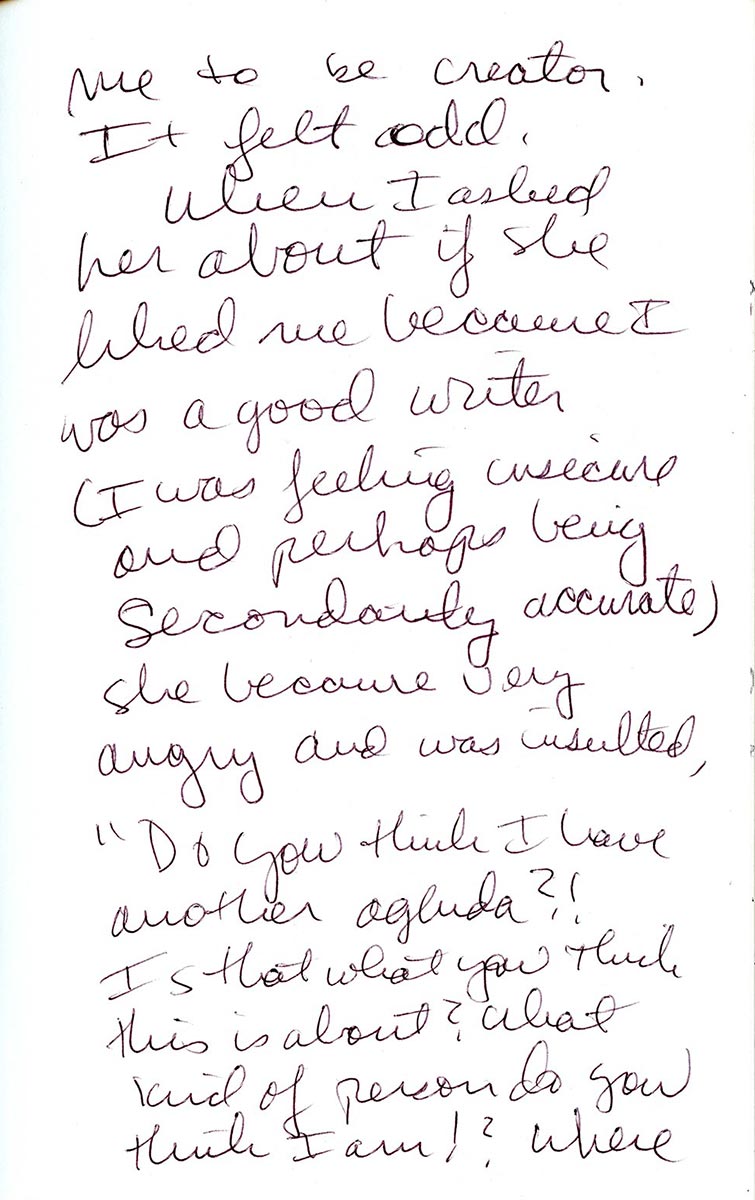 me to be creator.
It felt odd.
When I asked
her about if she
liked me because I
was a good writer
(I was feeling insecure
and perhaps being
secondarily accurate)
she became very
angry and was insulted,
"Do you think I have
another agenda?!
Is that what you think
this is about? What
kind of person do you
think I am!? Where